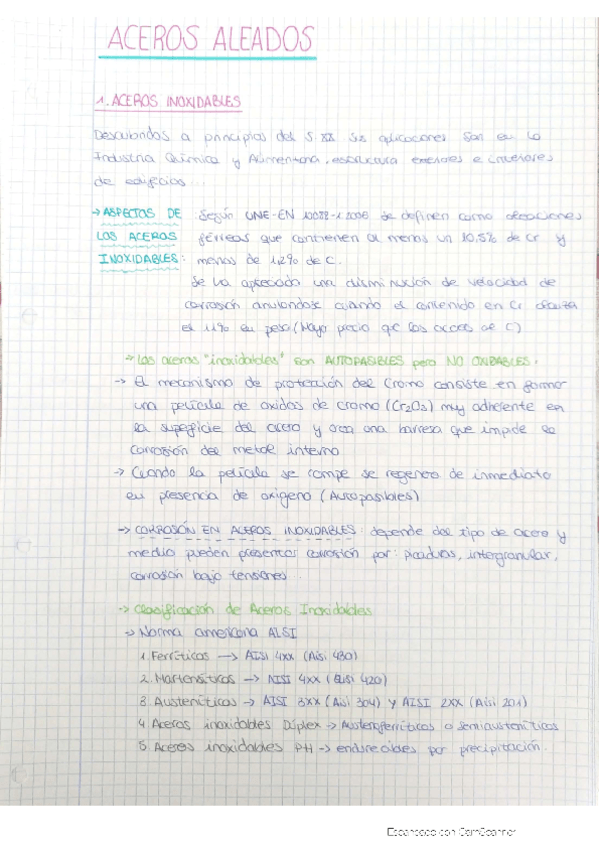 ACEROS ALEADOS
1. ACEROS INOXIDABLES
Descubiertos a principios del S. XX. Sus aplicaciones son en la
Industria Química y Alimentaria, estructura exteriores e interiores
de edificios...
→ ASPECTOS DE LOS ACEROS INOXIDABLES: Según UNE-EN 10088-1:2006 se definen como aleaciones
férreas que contienen al menos un 10,5% de Cr y
menos de 1,2% de C.
Se va apreciado una disminución de velocidad de
corrosión anulandose cuando el contenido en Cr alcanza
el 11% en peso (Mayor precio que los aceros al C)
→ Los aceros "inoxidables" son AUTOPASIBLES pero NO OXIDABLES.
→ El mecanismo de protección del Cromo consiste en formar
una película de oxidos de cromo (Cr2O3) muy adherente en
la superficie del acero y crea una barrera que impide la
corrosión del metal interno
→ Cuando la película se rompe se regenera de inmediato
en presencia de oxigeno (Autopasibles)
→ CORROSIÓN EN ACEROS INOXIDABLES: depende del tipo de acero y
medio pueden presentar corrosión por: picaduras, intergranular,
corrosión bajo tensiones...
→ Clasificación de Aceros Inoxidables
→ Norma americana AISI
1. Ferríticos → AISI 4xx (Aisi 430)
2. Martensíticos → AISI 4xx (Aisi 420)
3. Austeníticos → AISI 3XX (Aisi 304) y AISI 2XX (Aisi 201)
4. Aceros inoxidables Dúplex → Austenoferríticos o semiausteníticos
5. Aceros inoxidables PH → endurecibles por precipitación.
Escaneado con CamScanner